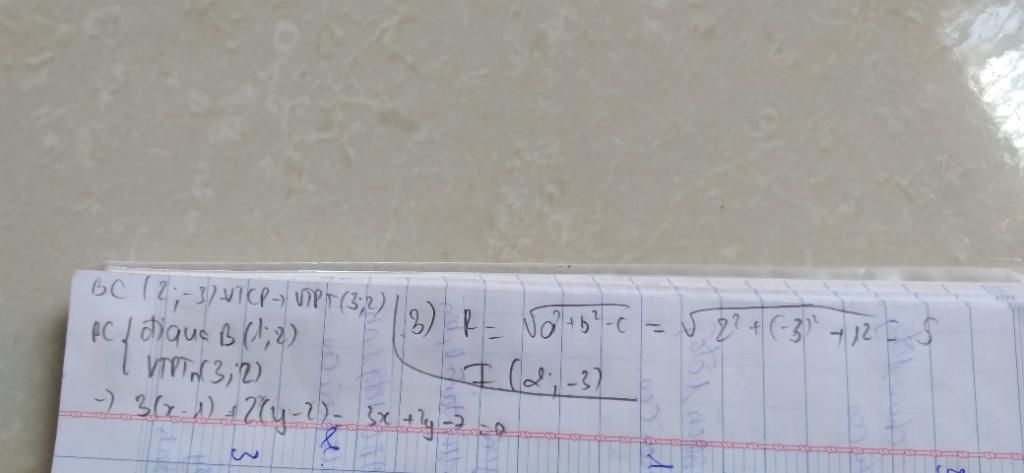 BC (2;-3) VTCP → VTPT (3;2)
BC { đi qua B (1;2)
VTPT n (3;2)
→ 3(x-1) + 2(y-2) = 3x + 2y - 7 = 0
3) R = √a²+b²-c = √2²+(-3)²+12 = 5
I (2; -3)
3 2 1